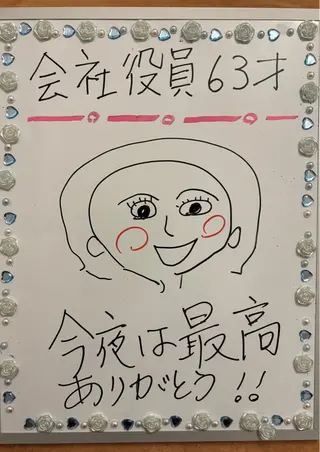 会社役員63才
今夜は最高
ありがとう!!